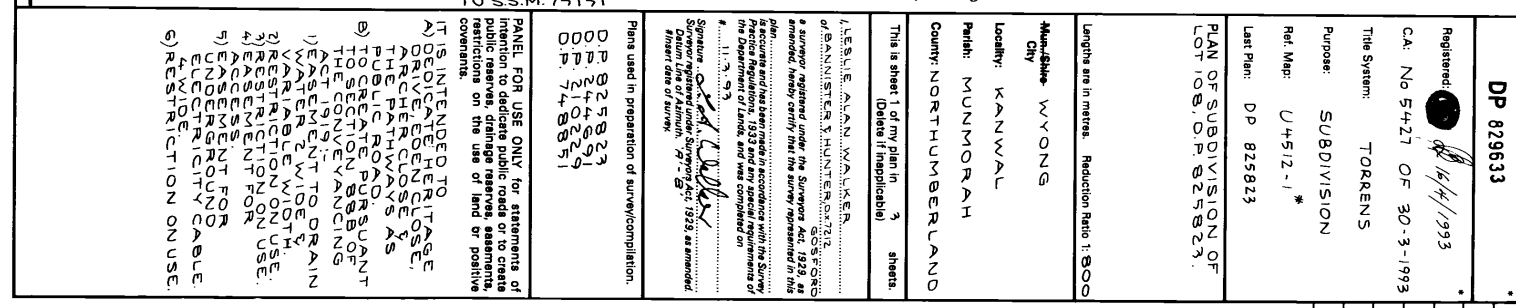 DP 829633
Registered: 16/4/1993
C.A: No 5427 OF 30-3-1993
Title System: TORRENS
Purpose: SUBDIVISION
Ref. Map: U4512-1*
Last Plan: DP 825823
PLAN OF SUBDIVISION OF
LOT 108, D.P. 825823.
Lengths are in metres. Reduction Ratio 1: 800
Mun./Shire
City WYONG
Locality: KANWAL
Parish: MUNMORAH
County: NORTHUMBERLAND
This is sheet 1 of my plan in 3 sheets.
(Delete if inapplicable)
I, LESLIE ALAN WALKER
of BANNISTER & HUNTER, D.X. 7212, GOSFORD
a surveyor registered under the Surveyors Act, 1929, as
amended, hereby certify that the survey represented in this
plan
is accurate and has been made in accordance with the Survey
Practice Regulations, 1933 and any special requirements of
the Department of Lands, and was completed on
#. 11.3.93
Signature
Surveyor registered under Surveyors Act, 1929, as amended.
Datum Line of Azimuth. 'A' - 'B'
#Insert date of survey.
Plans used in preparation of survey/compilation.
D.P. 825823
D.P. 244691
D.P. 210229
D.P. 748851
PANEL FOR USE ONLY for statements of
intention to dedicate public roads or to create
public reserves, drainage reserves, easements,
restrictions on the use of land or positive
covenants.
IT IS INTENDED TO
A) DEDICATE HERITAGE
DRIVE, EDEN CLOSE,
ARCHER CLOSE &
THE PATHWAYS AS
PUBLIC ROAD.
B) TO CREATE PURSUANT
TO SECT. 88B OF
THE CONVEYANCING
ACT 1919:-
1) EASEMENT TO DRAIN
WATER 2 WIDE &
VARIABLE WIDTH.
2) RESTRICTION ON USE.
3) RESTRICTION ON USE.
4) EASEMENT FOR
ACCESS.
5) EASEMENT FOR
UNDERGROUND
ELECTRICITY CABLE
4 WIDE.
6) RESTRICTION ON USE.